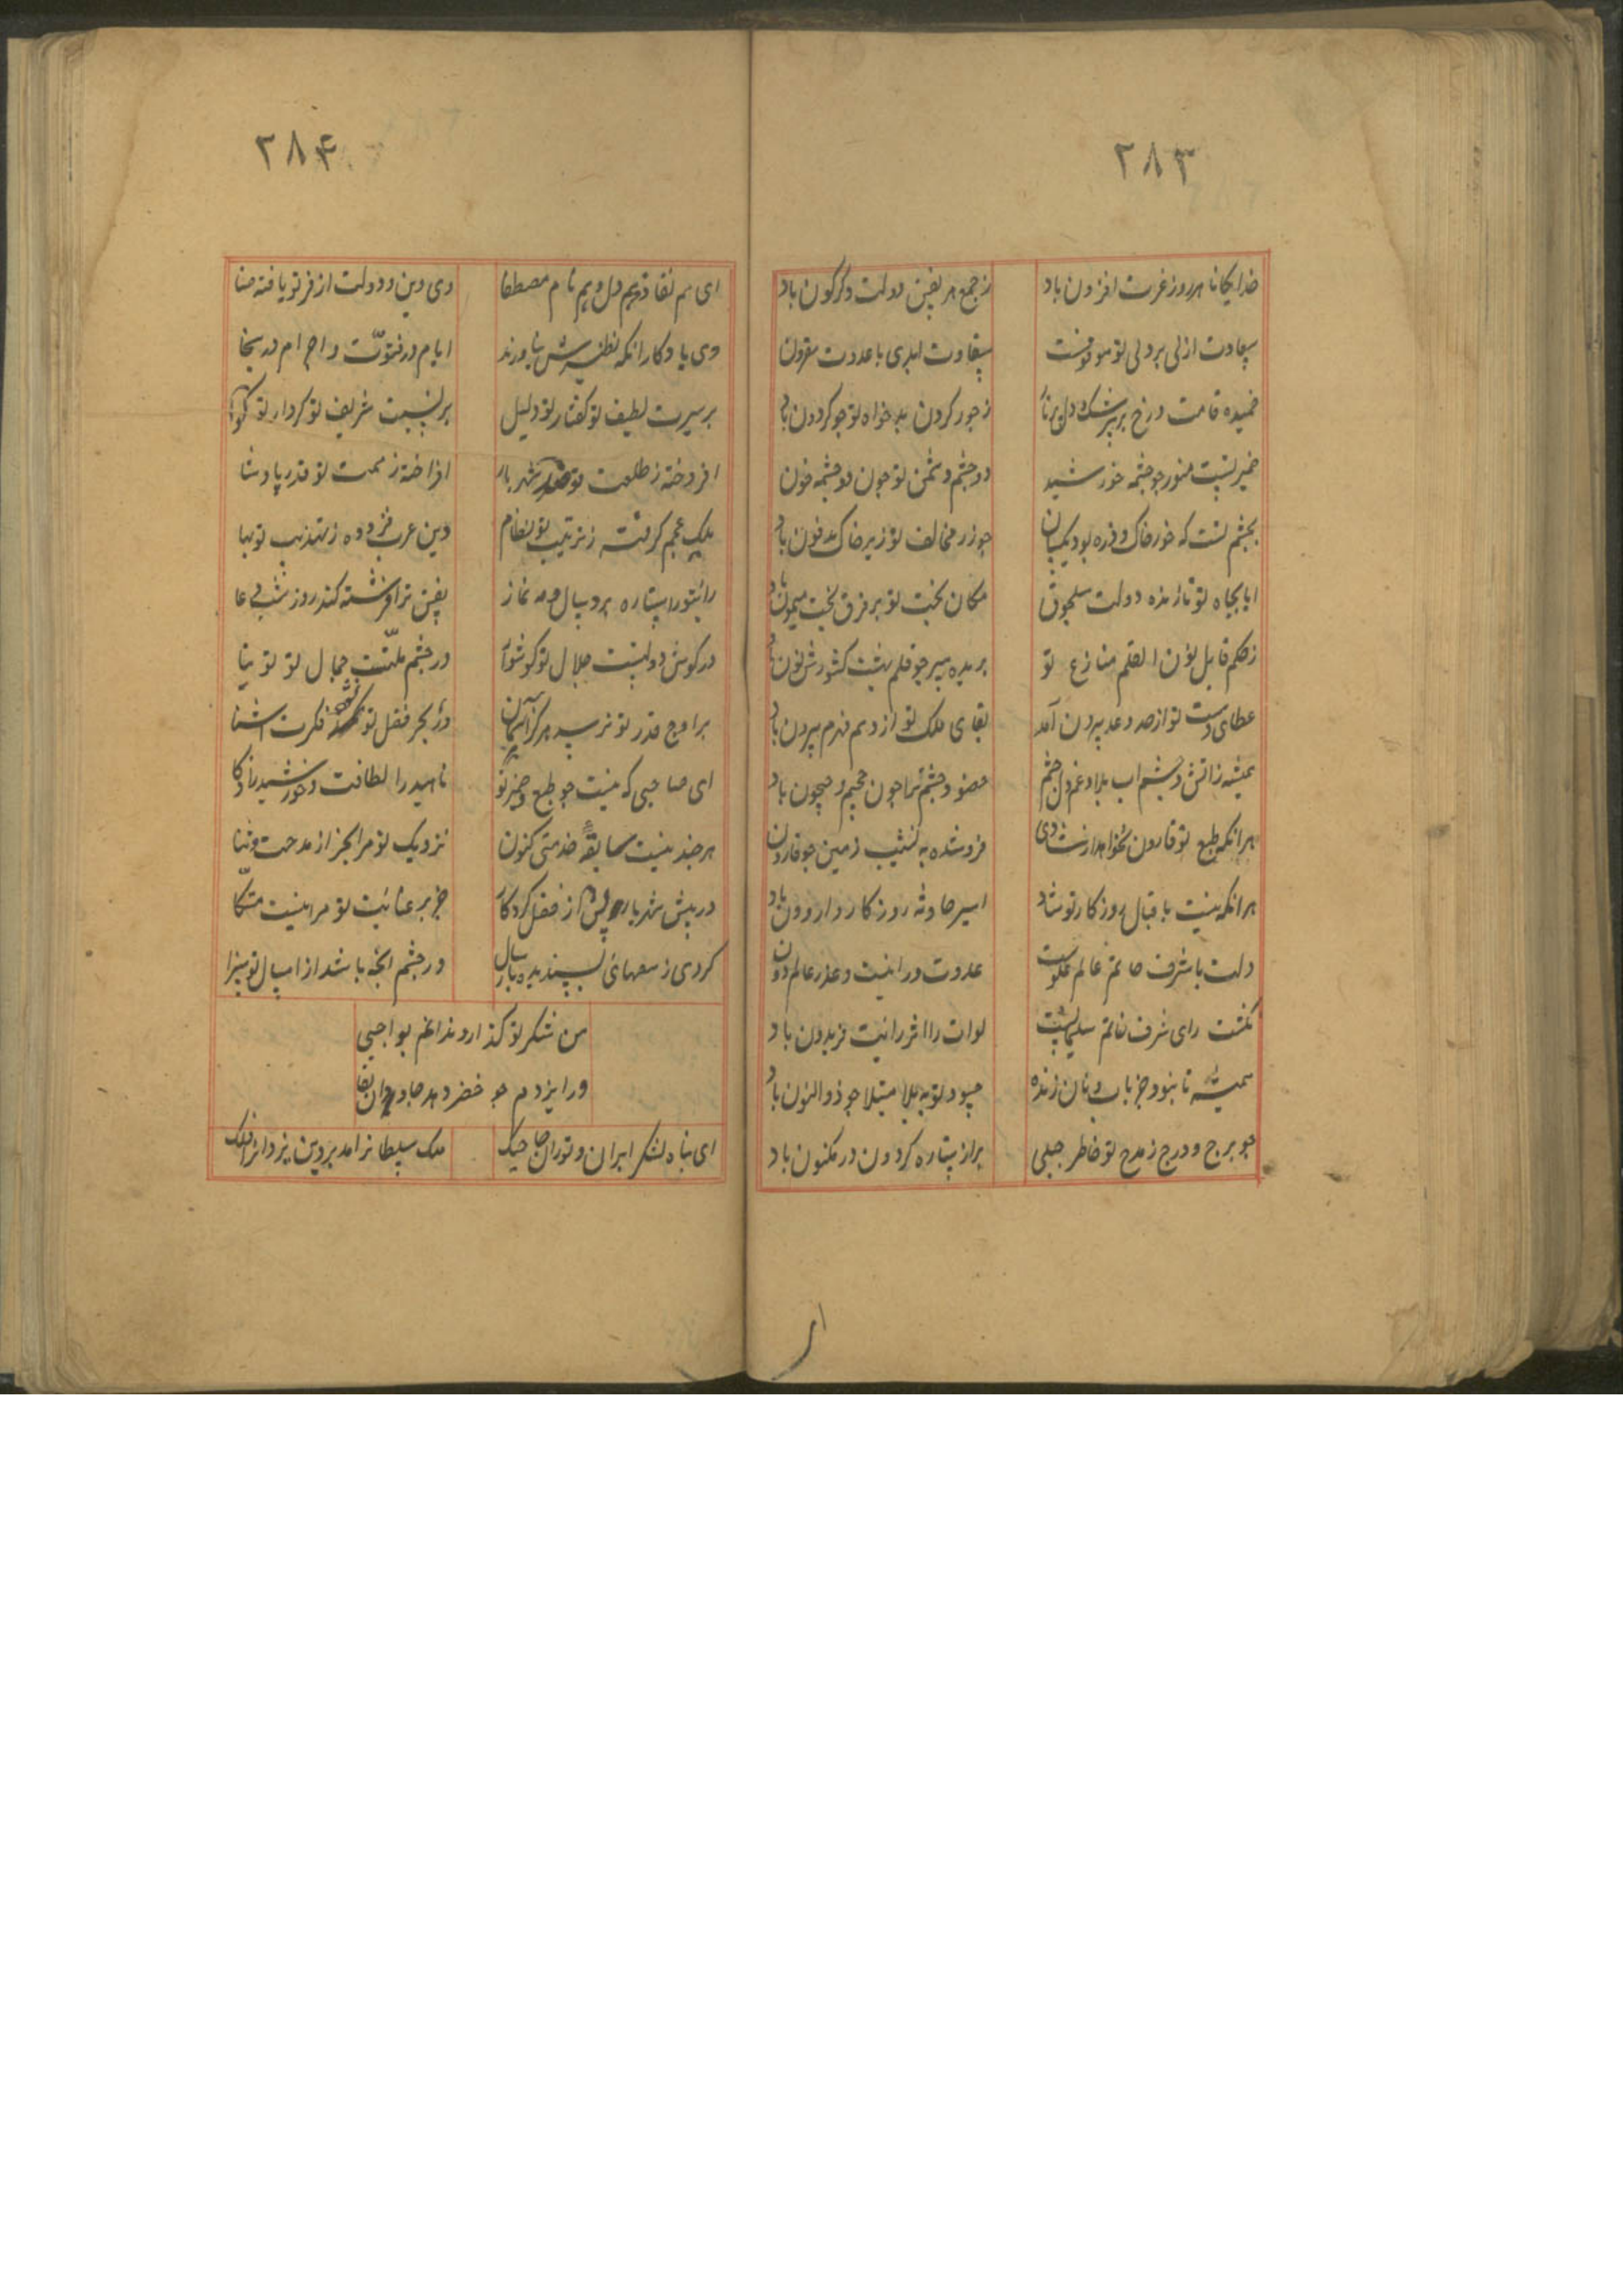 ۲۸۳
خدایکانا هر روز عزت افزون باد
ز جمع هر نفس دولت دکرکون باد
سعادت ازلی بر ولی تو موقوفست
شقاوت ابدی با عدوت مقرون
خمیده قامت و رخ پر سرشک دل
ز جور کردون بدخواه تو جو کردون باد
ضمیر تست منور جو جشمه خورشید
دو جشم دشمن تو جون دو جشمه خون
بجشم تست که خور خاک و ذره بود یکسان
جو زر مخالف تو زیر خاک مدفون باد
ایا بجاه تو نازنده دولت سلجوق
مکان بخت تو بر فرق بخت میمون باد
ز حکم قابل نون القلم منازع تو
بریده سر جو قلم پشت کشورش نون باد
عطای دست تو از حد وعد بیرون آمد
بقای ملک تو از وهم فهم بیرون باد
همیشه ز آتش و آب بلا و غم دل جشم
جون جحیم و جیحون باد
هر انکه طبع تو قارون نخواهد از شادی
فروشده به نشیب زمین جو قارون
هر انکه نیست باقبال روز کار تو شاد
اسیر حادثه روز کار وارون باد
دلت با شرف خاتم عالم علویست
عدوت در عالم دون
رای شرف خاتم سلیمانیست
لوات را اثر رایت فریدون باد
همیشه تا نبود جز باب و نان زنده
حسود تو به بلا مبتلا جو ذوالنون باد
جو برج و درج ز مدح تو خاطر جبلی
پر از ستاره کردون در مکنون باد
۲۸۴
ای هم نام مصطفا
وی دین و دولت از فر تو یافته
وی یادکار انکه نظیرش نیاورند
ایام در فتوت و اجرام در سخا
بر سیرت لطیف تو کفتار تو دلیل
بر نسبت شریف تو کردار تو کوا
افروخته ز طلعت تو شهریار
افراخته ز همت تو قدر پادشا
ملک عجم کرفته ز ترتیب تو نظام
دین عرب فزوده ز تهذیب تو بها
ستاره برد سال و مه نماز
نفس ترا فرشته کند روز شب دعا
در کوش دولتست جلال تو کوشوار
در جشم ملتست جمال تو توتیا
بر اوج قدر تو نرسد مرکز آسمان
در بحر فضل تو نکند فکرت اشنا
ای صاحبی که نیست جو طبع و ضمیر تو
ناهید را لطافت و خورشید را ذکا
هر جند نیست سابقه خدمتی کنون
نزدیک تو مرا بجز از مدحت و ثنا
در پیش شهریار پس از فضل کردکار
جز بر عنایت تو مرا نیست متکا
کردی ز سعیهای پسندیده
در جشم انجه باشد از امثال تو سزا
من شکر تو کذارد ندانم بواجبی
ور ایزدم جو خضر دهد جاودان بقا
ای پناه لشکر ایران و توران
ملک سلطانرا